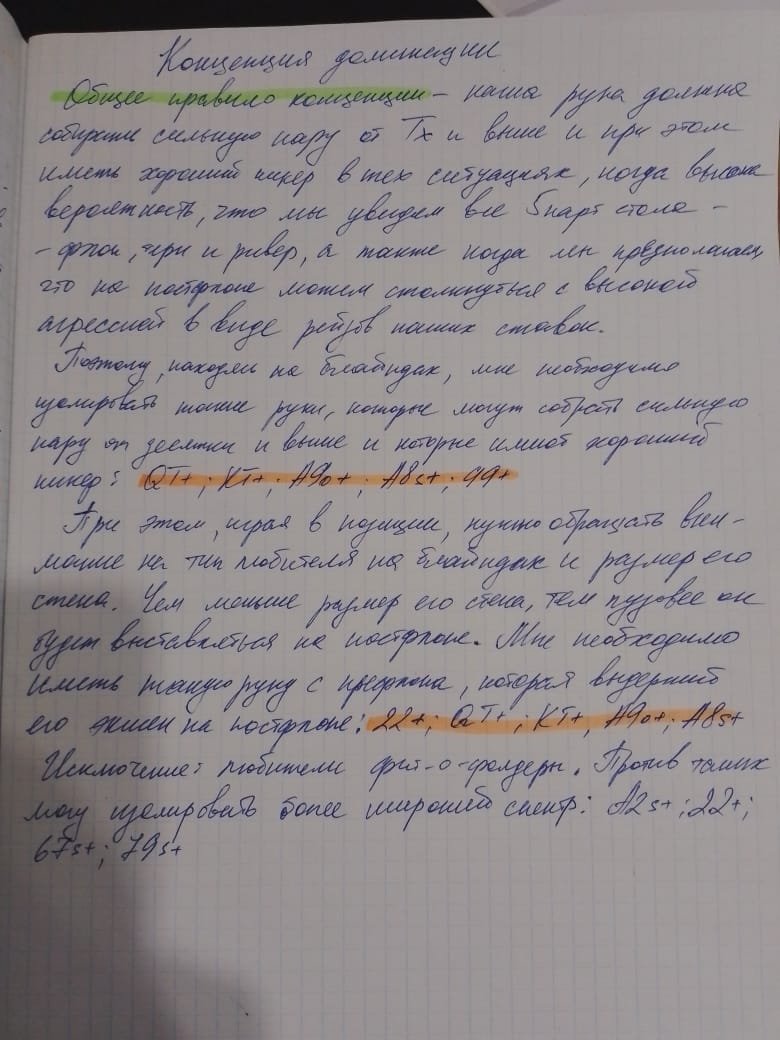 Концепция доминации
Общее правило концепции – наша рука должна
собирать сильную пару от Tx и выше и при этом
иметь хороший кикер в тех ситуациях, когда высока
вероятность, что мы увидим все 5 карт стола –
– флоп, терн и ривер, а также когда мы предполагаем,
что на постфлопе можем столкнуться с высокой
агрессией в виде рейзов наших ставок.
Поэтому, находясь на блайндах, мне необходимо
изолировать такие руки, которые могут собрать сильную
пару от десятки и выше и которые имеют хороший
кикер: QT+; KT+; A9o+; A8s+; 99+
При этом, играя в позиции, нужно обращать вни-
мание на тип любителя на блайндах и размер его
стека. Чем меньше размер его стека, тем пузовее он
будет выставляться на постфлопе. Мне необходимо
иметь такую руку с префлопа, которая выдержит
его экшен на постфлопе: 22+; QT+; KT+, A9o+; A8s+
Исключение: любители фит-о-фолдеры. Против таких
могу изолировать более широкий спектр: A2s+; 22+;
67s+; 79s+